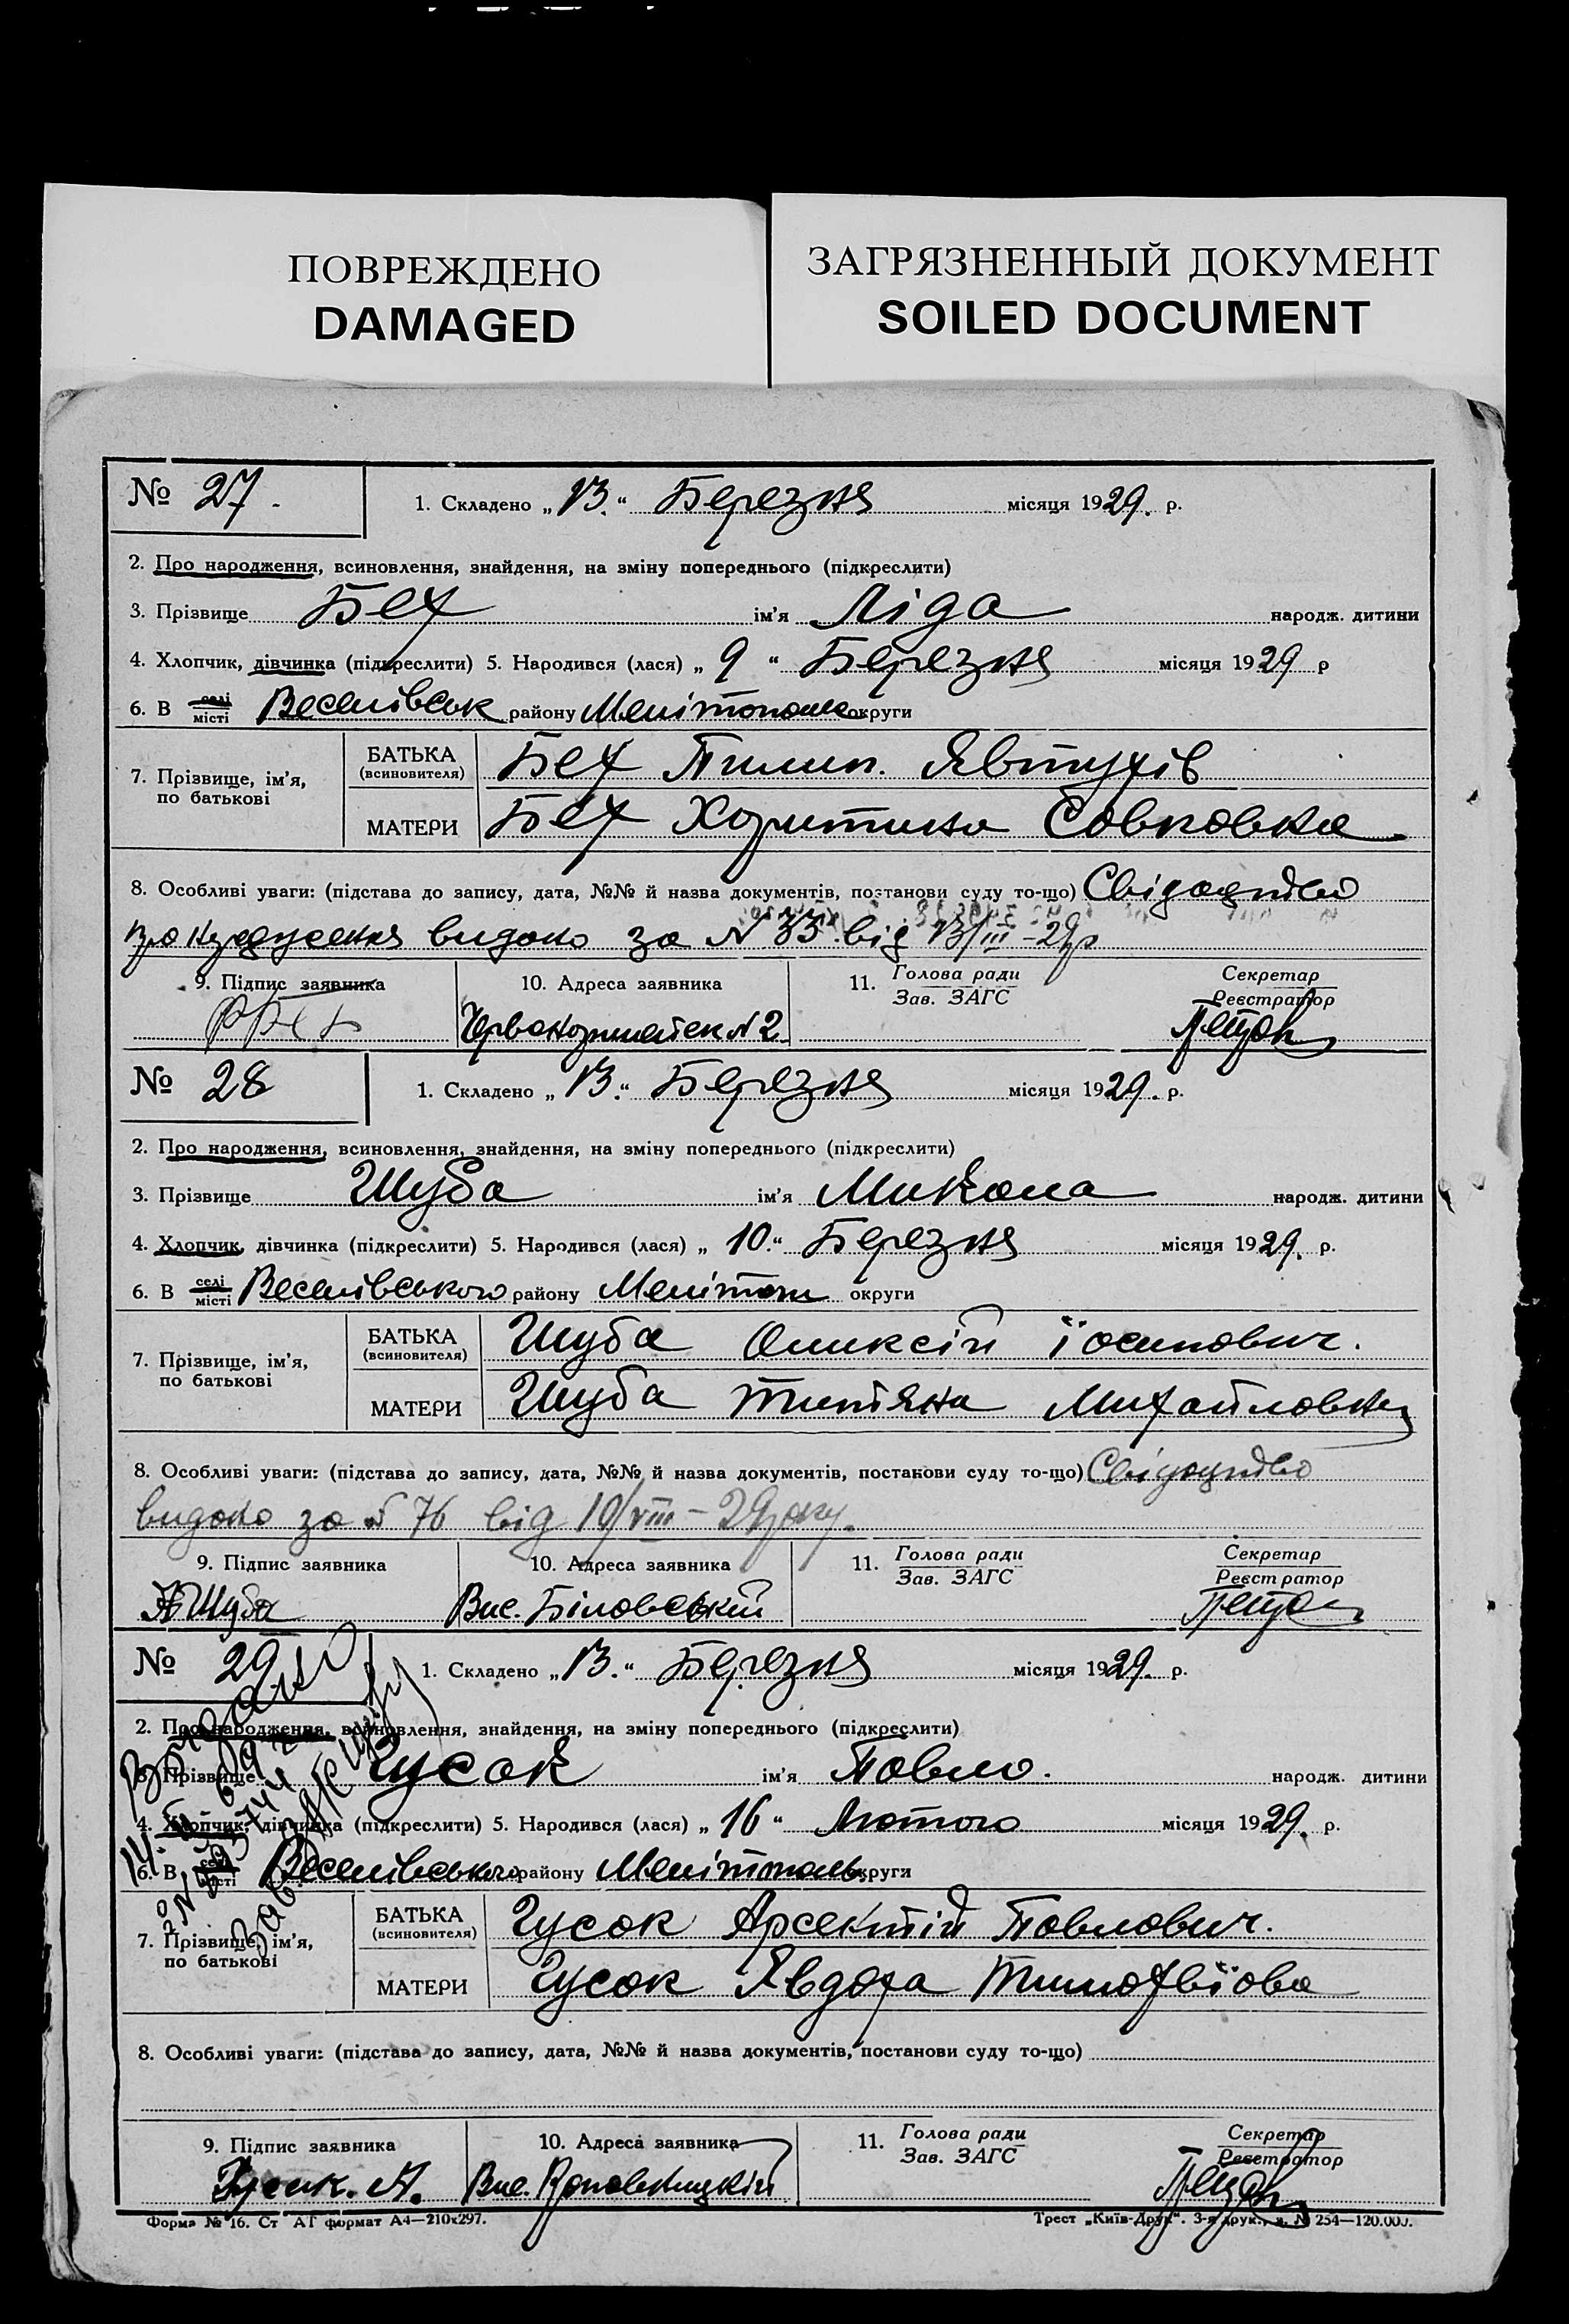 ПОВРЕЖДЕНО
DAMAGED
ЗАГРЯЗНЕННЫЙ ДОКУМЕНТ
SOILED DOCUMENT
№ 27.
1. Складено „13.“ Березня місяця 1929. р.
2. Про народження, всиновлення, знайдення, на зміну попереднього (підкреслити)
3. Прізвище Бех ім'я Ліда народж. дитини
4. Хлопчик, дівчинка (підкреслити) 5. Народився (лася) „ 9 “ Березня місяця 1929 р
6. В селі місті Веселівськ району Мелітопольс округи
7. Прізвище, ім'я, по батькові
БАТЬКА (всиновителя) Бех Пилип. Явтухів
МАТЕРИ Бех Хритина Совковна
8. Особливі уваги: (підстава до запису, дата, №№ й назва документів, постанови суду то-що) Свідоцтво
про видано за № 33 від 13/III-29р
9. Підпис заявника
10. Адреса заявника
11. Голова ради
Зав. ЗАГС
Секретар
Реєстратор
№ 28
1. Складено „13.“ Березня місяця 1929. р.
2. Про народження, всиновлення, знайдення, на зміну попереднього (підкреслити)
3. Прізвище Шуба ім'я Микола народж. дитини
4. Хлопчик, дівчинка (підкреслити) 5. Народився (лася) „ 10.“ Березня місяця 1929. р.
6. В селі місті Веселівського району Мелітоп округи
7. Прізвище, ім'я, по батькові
БАТЬКА (всиновителя) Шуба Олексій Іосипович.
МАТЕРИ Шуба Титяна Михайловна
8. Особливі уваги: (підстава до запису, дата, №№ й назва документів, постанови суду то-що) Свідоцтво
видано за № 76 від 19/VIII-29року.
9. Підпис заявника
10. Адреса заявника
11. Голова ради
Зав. ЗАГС
Секретар
Реєстратор
А Шуба
Вис. Біловський
№ 29
1. Складено „13.“ Березня місяця 1929. р.
2. Про народження, всиновлення, знайдення, на зміну попереднього (підкреслити)
3. Прізвище Гусак ім'я Павло. народж. дитини
4. Хлопчик, дівчинка (підкреслити) 5. Народився (лася) „ 16 “ Лютого місяця 1929. р.
6. В селі місті Веселівського району Мелітополь округи
7. Прізвище, ім'я, по батькові
БАТЬКА (всиновителя) Гусак Арсентій Павлович.
МАТЕРИ Гусак Явдоха Тимофвіова
8. Особливі уваги: (підстава до запису, дата, №№ й назва документів, постанови суду то-що)
9. Підпис заявника
10. Адреса заявника
11. Голова ради
Зав. ЗАГС
Секретар
Реєстратор
Гусак. А.
Вис.
Форма № 16. Ст АТ формат А4—210х297.
Трест „Київ-Друк“. 3-я друк., з. № 254—120.000.